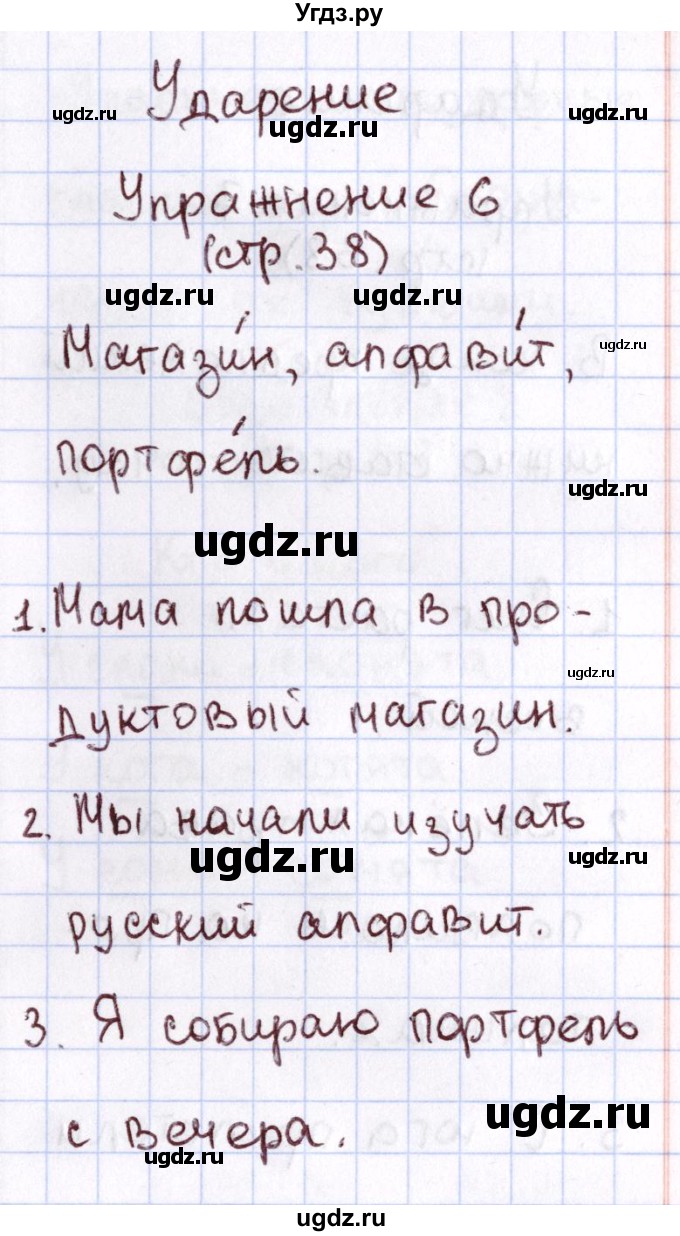 Угдз.ру
Ударение
ugdz.ru
ugdz.ru
ugdz.ru
Упражнение 6
(стр.38)
ugdz.ru
ugdz.ru
Магази́н, алфави́т,
ugdz.ru
портфе́ль.
ugdz.ru
ugdz.ru
1. Мама пошла в про-
ugdz.ru
дуктовый магазин.
2. Мы начали изучать
ugdz.ru
ugdz.ru
русский алфавит.
3. Я собираю портфель
ugdz.ru
с вечера.
ugdz.ru
ugdz.ru